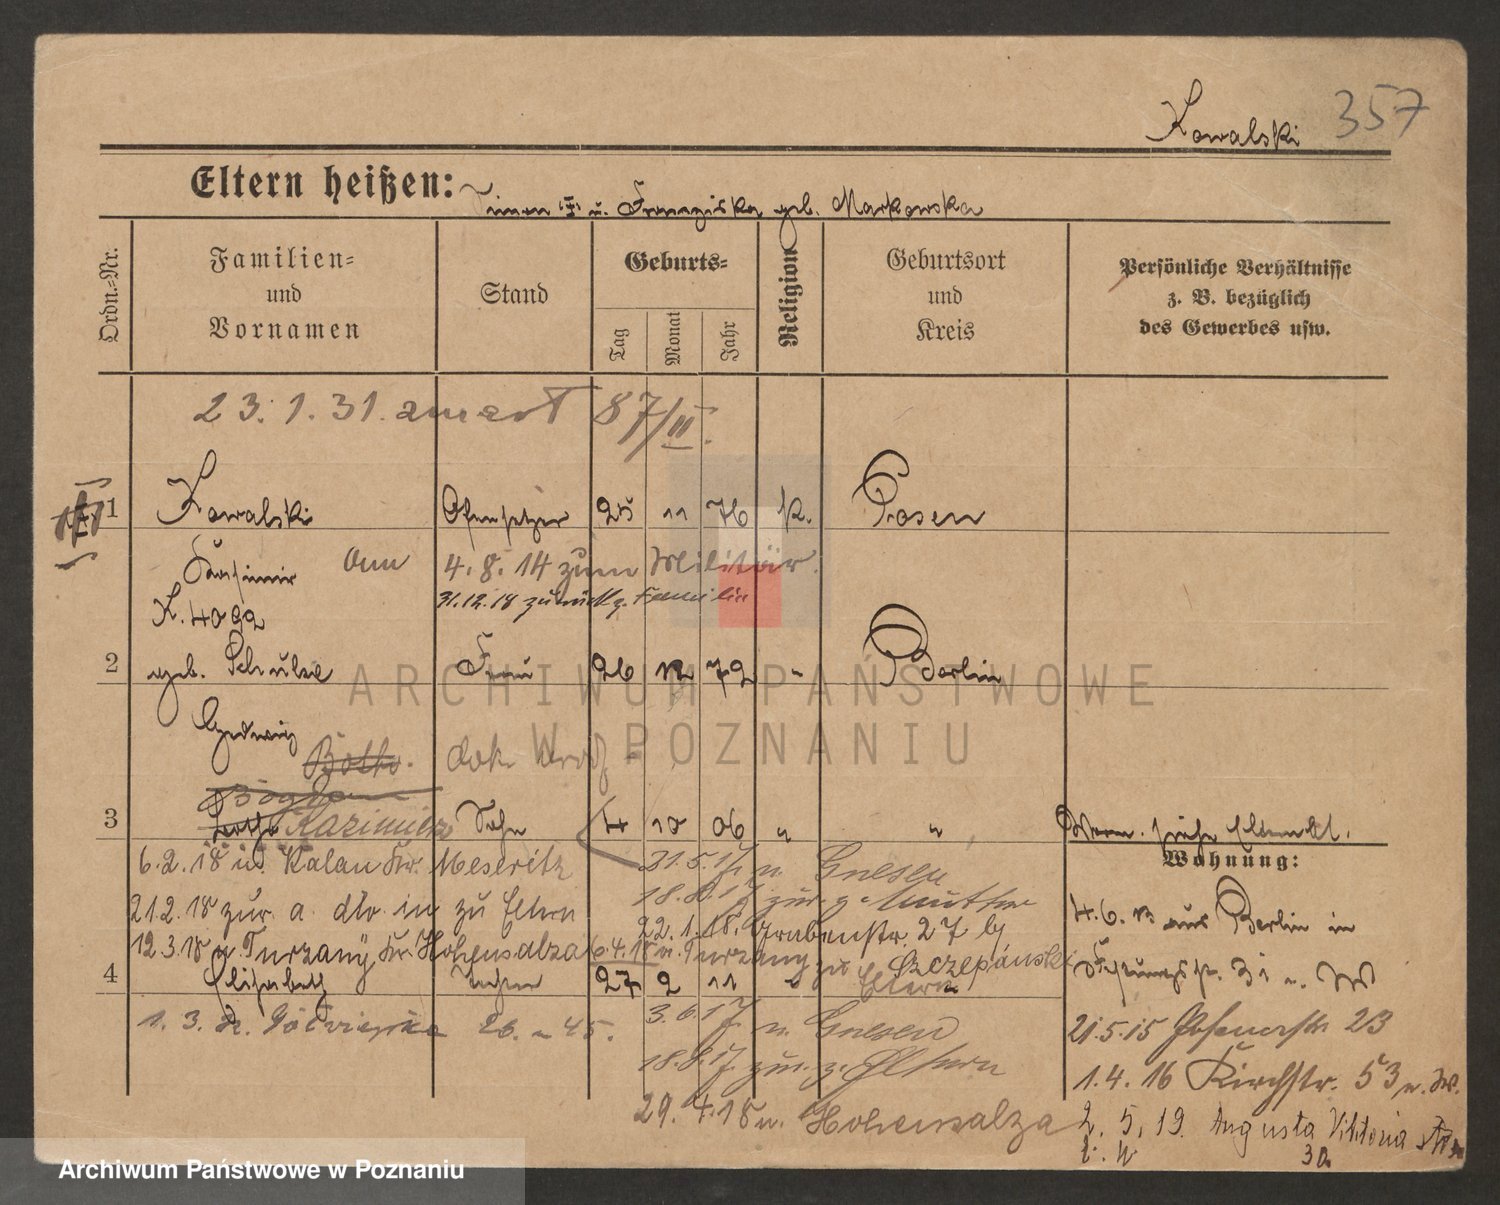 Kowalski 357
Eltern heißen: u. Franziska geb. Markowska
Ordn.-Nr.
Familien-
und
Vornamen
Stand
Geburts-
Tag
Monat
Jahr
Religion
Geburtsort
und
Kreis
Persönliche Verhältnisse
z. B. bezüglich
des Gewerbes usw.
23.1.31. zmarł 87/II.
1 Kowalski Ofensetzer 25 11 76 k. Posen
Kasimir 4.8.14 zum Militär.
K. 4099 31.12.18 zurück z. Familie
2 geb. Schulze Frau 26 12 72 " Berlin
Hedwig
Botho.
Bogdan
3 Kazimierz Sohn 4 10 06 " "
Wohnung:
6.2.18 n. Kalau Kr. Meseritz 31.5.17 n. Gnesen
21.2.18 zur. a. dto. in zu Eltern 18.8.17 zur. z. Mutter
22.1.18. Grabenstr. 27 bj Szczepański
12.3.18 n Turzany Kr. Hohensalza 6.4.18 n. Turzany zu Eltern
4 Elisabeth Tochter 27 2 11 "
1.3. 26. 45. 3.6.17 n. Gnesen
18.8.17 zur. z. Eltern
29.4.18 n. Hohensalza
4.6. aus Berlin in
31
21.5.15 Posenerstr 23
1.4.16 Kirchstr. 53
2.5.19 Augusta Viktoria
30
ARCHIWUM PAŃSTWOWE
W POZNANIU
Archiwum Państwowe w Poznaniu